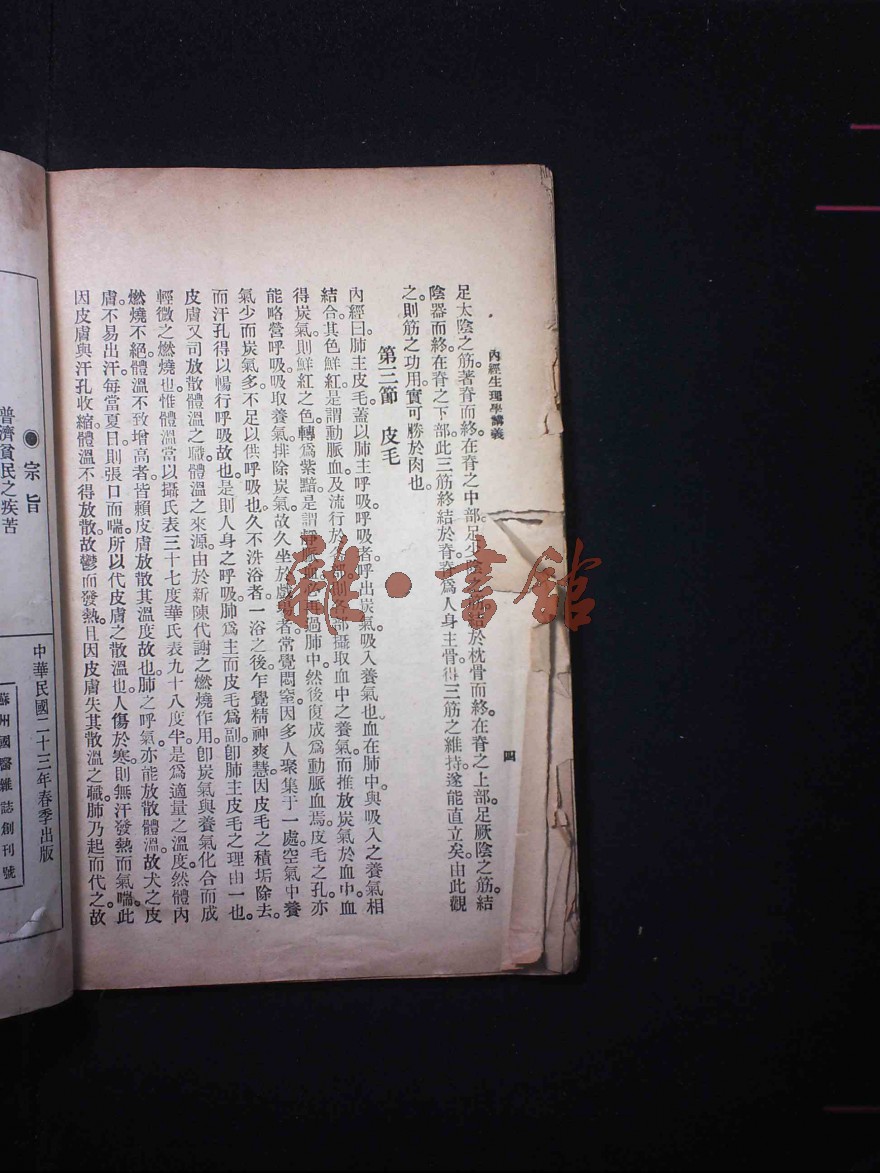 內經生理學講義
四
足太陰之筋。著脊而終。在脊之中部。足少陰之筋。結於枕骨而終。在脊之上部。足厥陰之筋。結
陰器而終。在脊之下部。此三筋終結於脊。脊爲人身主骨。得三筋之維持。遂能直立矣。由此觀
之。則筋之功用。實可勝於肉也。
第三節　皮毛
內經曰。肺主皮毛。蓋以肺主呼吸。呼吸者。呼出炭氣。吸入養氣也。血在肺中。與吸入之養氣相
結合。其色鮮紅。是謂動脈血。及流行於各部。則各部攝取血中之養氣。而推放炭氣於血中。血
得炭氣。則鮮紅之色。轉爲紫黯。是謂靜脈血。必再過肺中。然後復成爲動脈血焉。皮毛之孔。亦
能略營呼吸。吸取養氣。排除炭氣。故久坐於戲場者。常覺悶窒。因多人聚集于一處。空氣中養
氣少而炭氣多。不足以供呼吸也。久不洗浴者。一浴之後。乍覺精神爽慧。因皮毛之積垢除去。
而汗孔得以暢行呼吸故也。是則人身之呼吸。肺爲主而皮毛爲副。卽肺主皮毛之理由一也。
皮膚又司放散體溫之職。體溫之來源。由於新陳代謝之燃燒作用。卽炭氣與養氣化合而成
輕微之燃燒也。惟體溫當以攝氏表三十七度。華氏表九十八度半。是爲適量之溫度。然體內
燃燒不絕。體溫不致增高者。皆賴皮膚放散其溫度故也。肺之呼氣。亦能放散體溫。故犬之皮
膚。不易出汗。每當夏日。則張口而喘。所以代皮膚之散溫也。人傷於寒。則無汗發熱而氣喘。此
因皮膚與汗孔收縮。體溫不得放散。故鬱而發熱。且因皮膚失其散溫之職。肺乃起而代之。故
●宗旨
普濟貧民之疾苦
中華民國二十三年春季出版
蘇州國醫雜誌創刊號
雜·書館